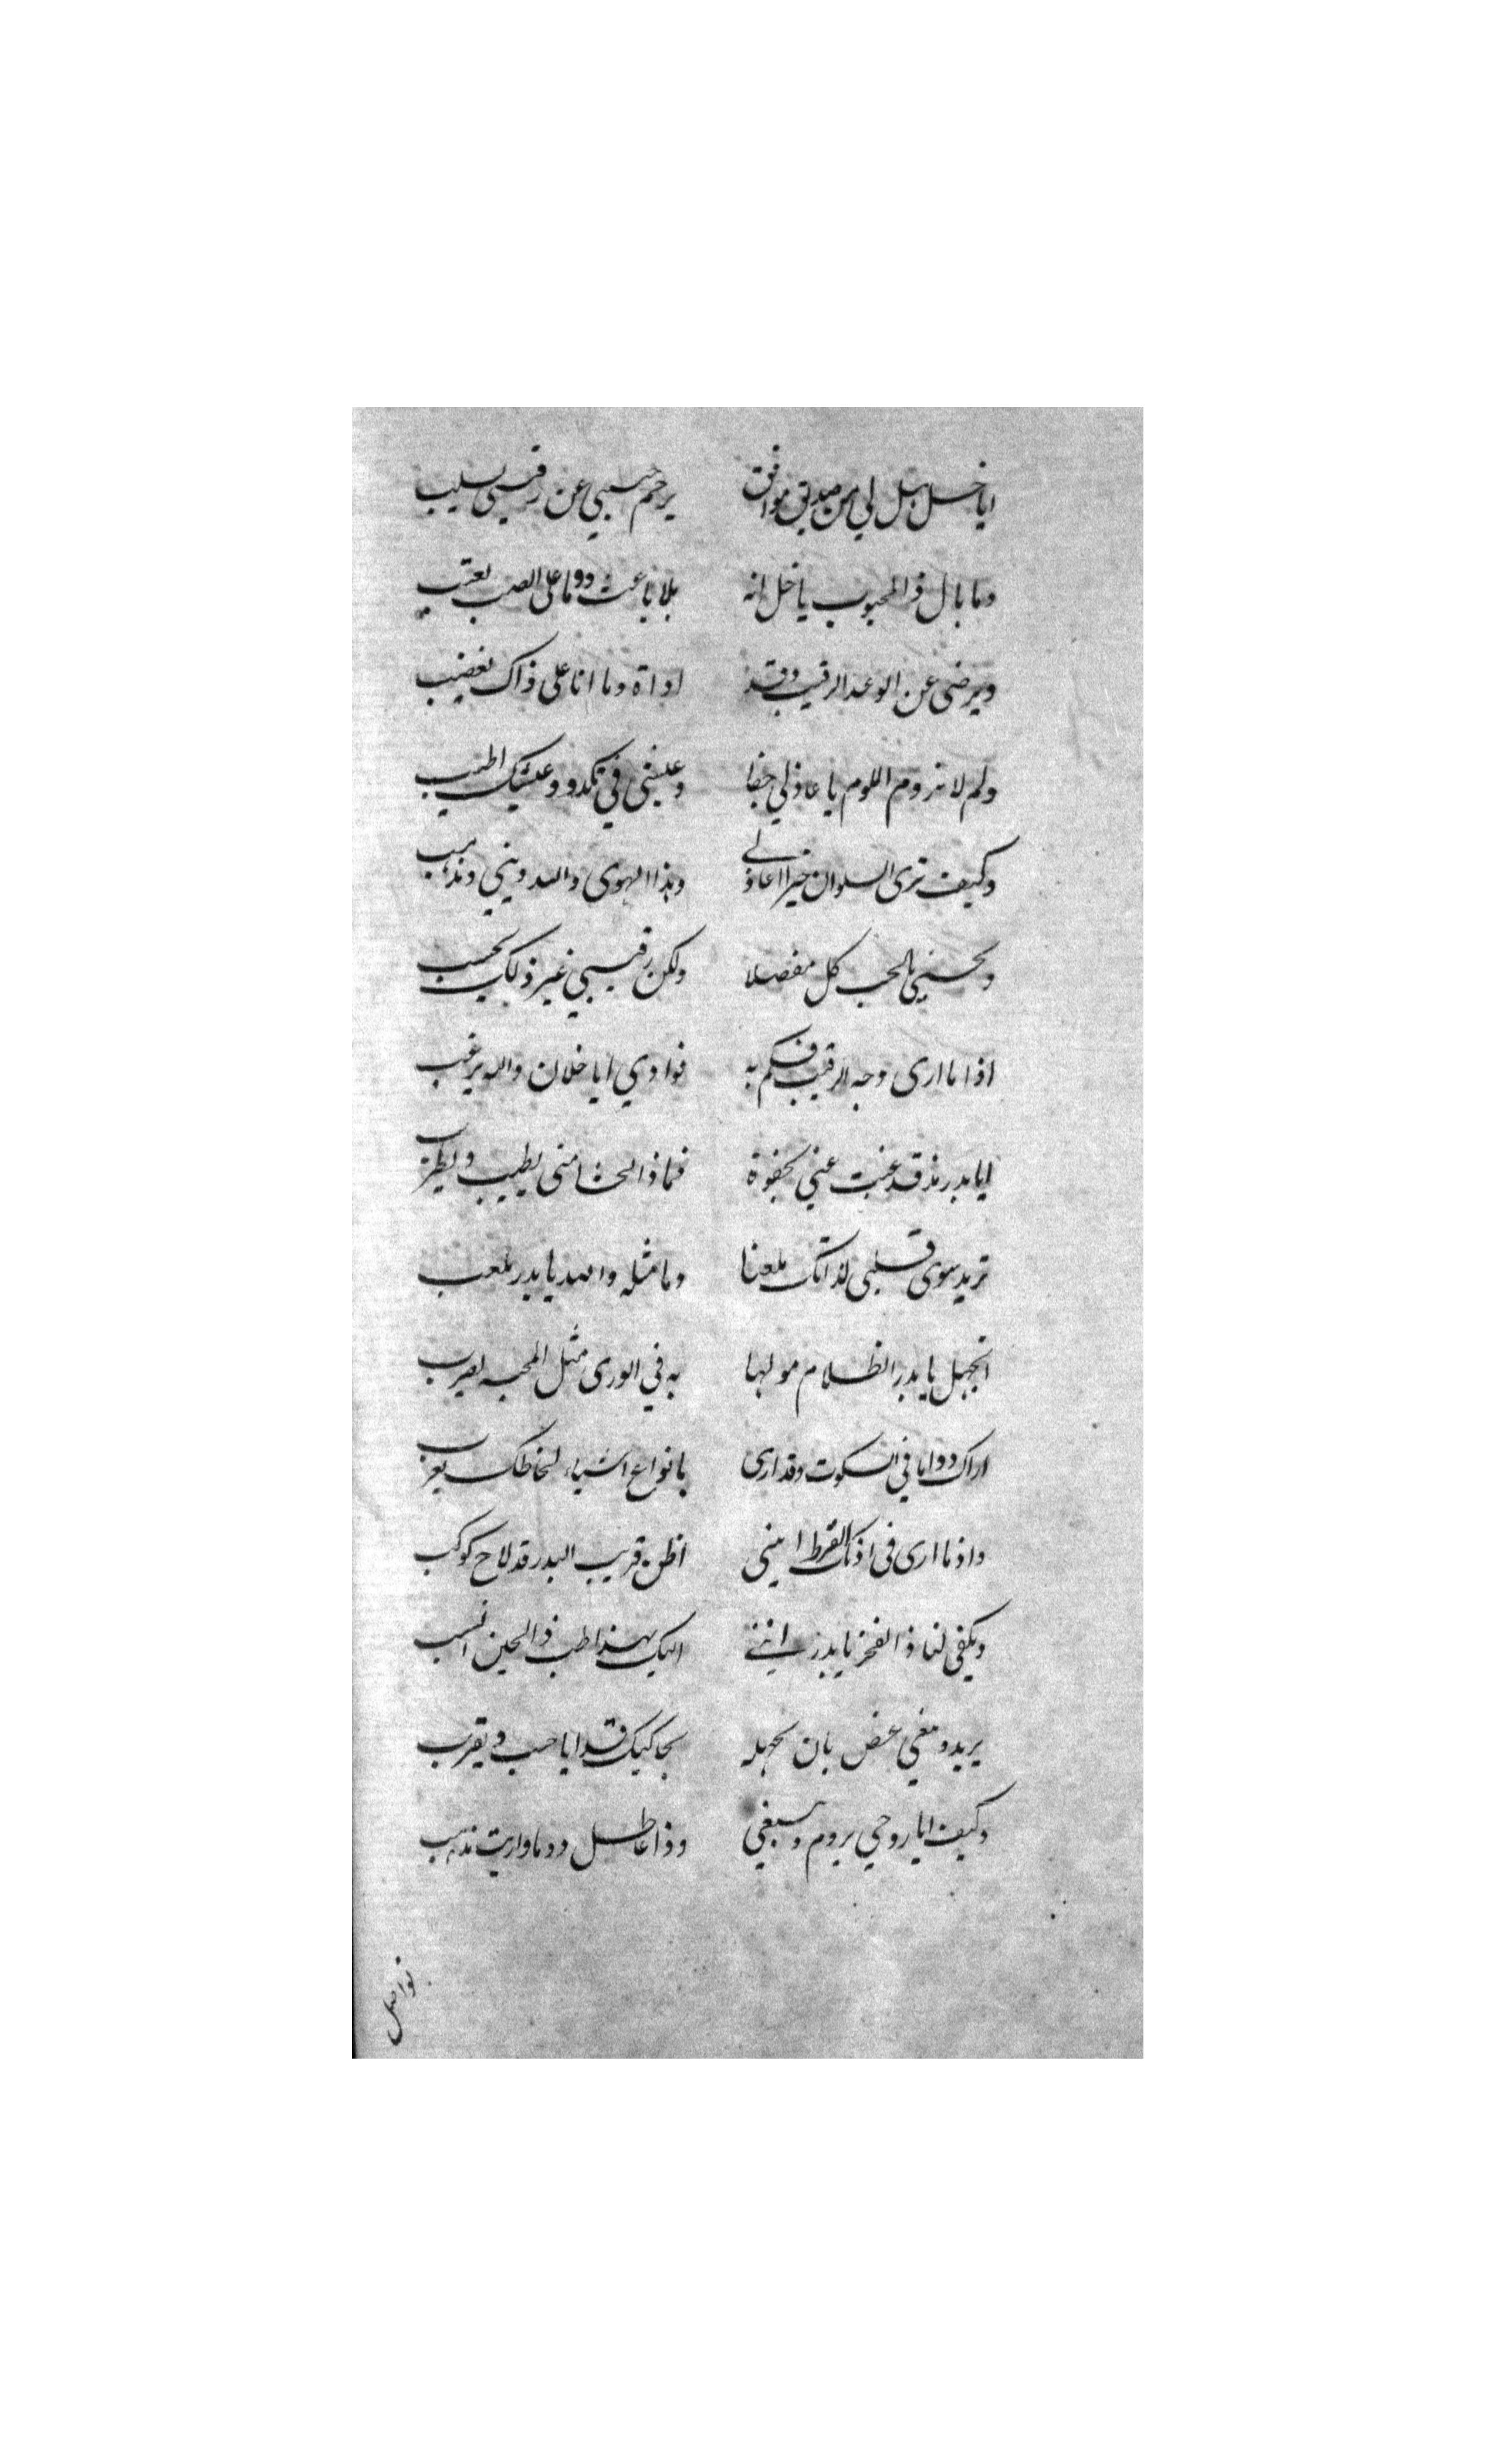 ايا خل هل لي من صديق موافق يرحم حبيبي عن رقيبي يسلب
وما بال ذا المحبوب يا خل انه بلا باعث دوما على الصب يعتب
ويرضى عن الوعد الرقيب وقد اداة وما انا على ذاك يغضب
ولم لا تروم اللوم يا عاذلي جفا وعيشي في نكد وعيشك اطيب
وكيف ترى السلوان خيرا اعاذلي وهذا الهوى والله ديني ومذهب
بالحب كل مفصلا ولكن رقيبي غير ذلك يحسب
اذا ما ارى وجه الرقيب فكم به فوادي ايا خلان والله يرغب
ايا بدر مذ قد غبت عني بجفوة فماذا الحشا مني يطيب ويطرب
تريد سوى قلبي لذاتك ملعبا وما مثله والله يا بدر ملعب
اتجهل يا بدر الظلام مولها به في الورى مثل المحبه يضرب
اراك دواما في السكوت وقد ارى بانواع اشياء لحاظك يعرب
واذ ما ارى في اذنك القرط انني اظن قريب البدر قد لاح كوكب
ويكفي لنا ذا الفخر يا بدر انني اليك بهذا طب ذا الحين انسب
يريد ومغي غصن بان بجهله يحاكيك قدا يا حب ويقرب
وكيف ايا روحي يروم ويبتغي وذا عاطل دوما وانت مذهب
تواصل